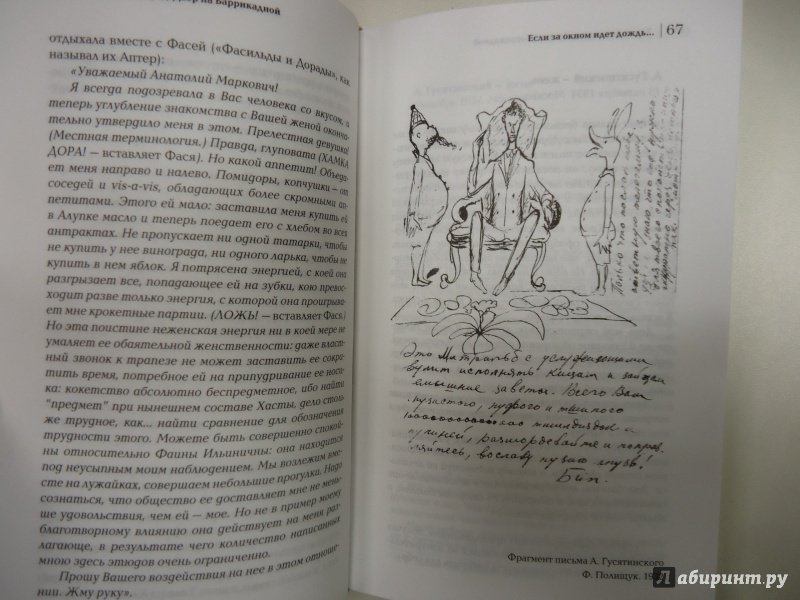 на Баррикадной
отдыхала вместе с Фасей («Фасильды и Дорады», как
называл их Аптер):
«Уважаемый Анатолий Маркович!
Я всегда подозревала в Вас человека со вкусом, а
теперь углубление знакомства с Вашей женой оконча-
тельно утвердило меня в этом. Прелестная девушка!
(Местная терминология.) Правда, глуповата (ХАМКА
ДОРА! — вставляет Фася). Но какой аппетит! Объеда-
ет меня направо и налево. Помидоры, копчушки — от
соседей и vis-a-vis, обладающих более скромными ап-
петитами. Этого ей мало: заставила меня купить ей
в Алупке масло и теперь поедает его с хлебом во всех
антрактах. Не пропускает ни одной татарки, чтобы
не купить у нее винограда, ни одного ларька, чтобы не
купить в нем яблок. Я потрясена энергией, с коей она
разгрызает все, попадающее ей на зубки, кою превос-
ходит разве только энергия, с которой она проигрыва-
ет мне крокетные партии. (ЛОЖЬ! — вставляет Фася.)
Но эта поистине неженская энергия ни в коей мере не
умаляет ее обаятельной женственности: даже власт-
ный звонок к трапезе не может заставить ее сокра-
тить время, потребное ей на припудривание ее носи-
ка: кокетство абсолютно беспредметное, ибо найти
"предмет" при нынешнем составе Хасты, дело столь
же трудное, как... найти сравнение для обозначения
трудности этого. Можете быть совершенно спокой-
ны относительно Фаины Ильиничны: она находится
под неусыпным моим наблюдением. Мы возлежим вме-
сте на лужайках, совершаем небольшие прогулки. Надо
сознаться, что общество ее доставляет мне не мень-
ше удовольствия, чем ей — мое. Но не в пример моему
благотворному влиянию она действует на меня раз-
лагающе, в результате чего количество написанных
мною здесь этюдов очень ограниченно.
Прошу Вашего воздействия на нее в этом отноше-
нии. Жму руку».
Если за окном идет дождь...
67
Только что послал тебе
Это Матрапье с услужающими
велит исполнять Кисам и зайцам
смышные заветы. Всего Вам
пузастого, пуфвого и тишного
и
вославу пузию пузь!
Бип.
Фрагмент письма А. Гусятинского
Ф. Полищук.
лабиринт.ру